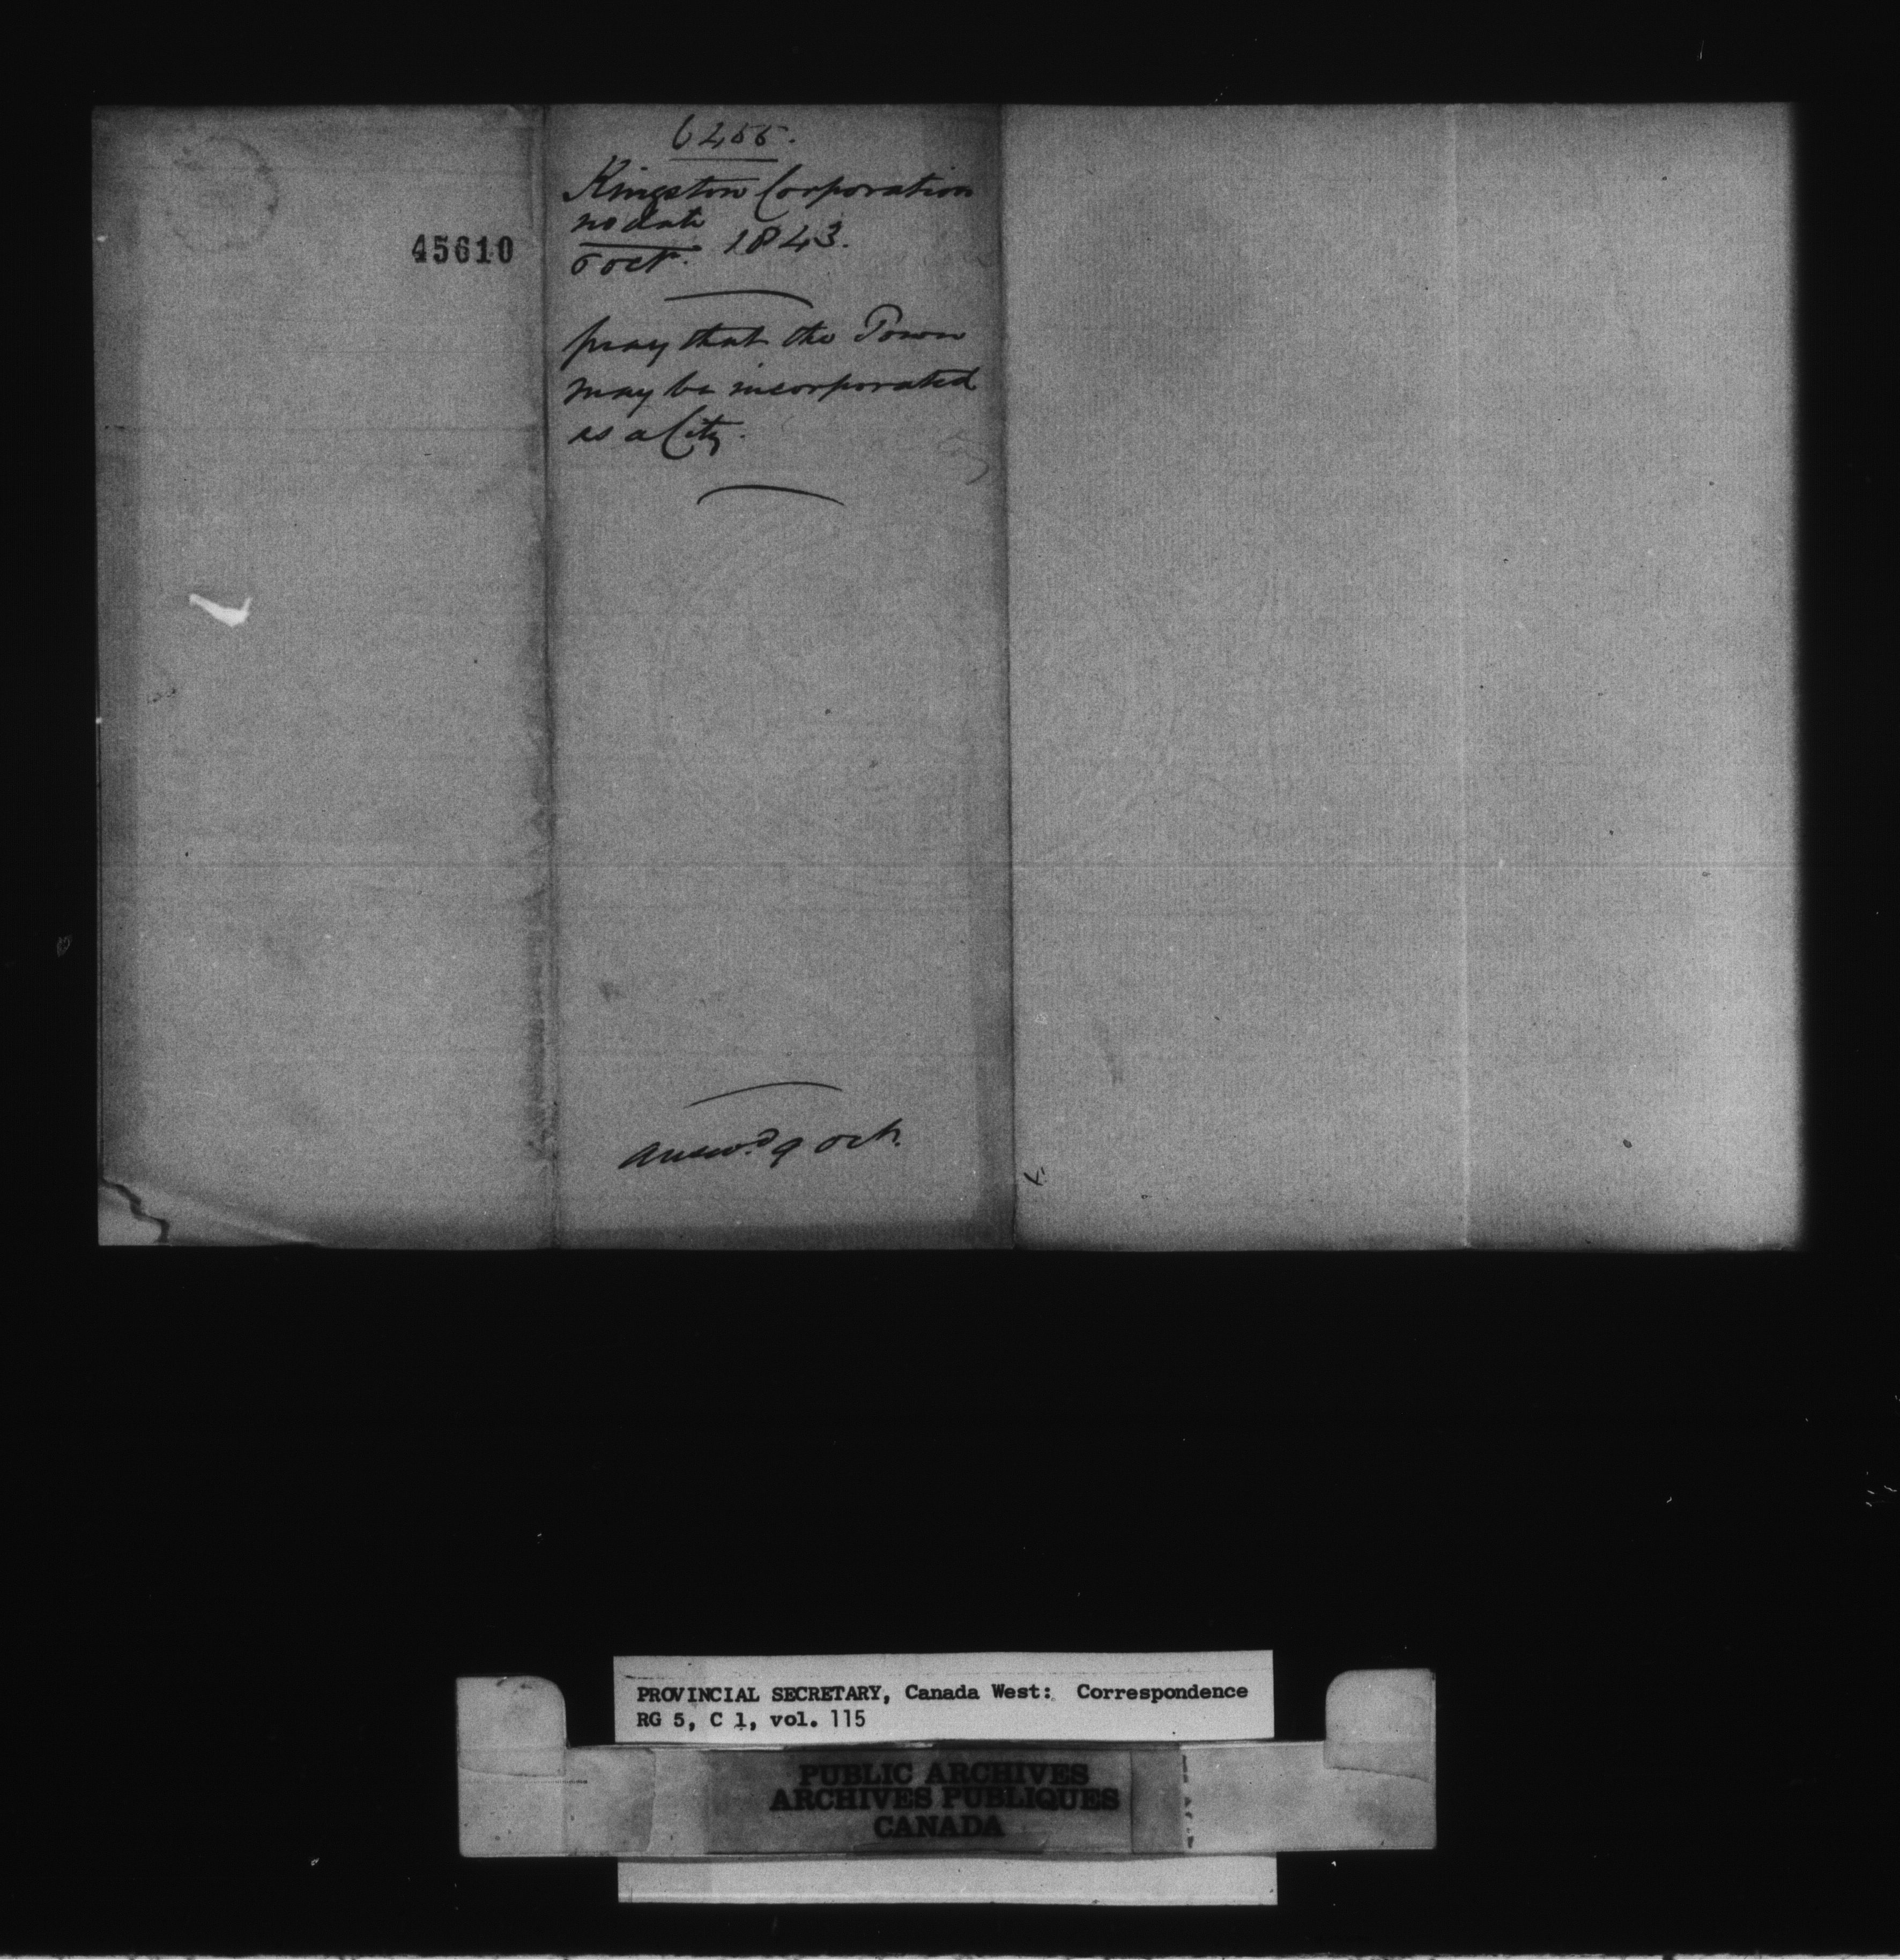 6255.
45610
Kingston Corporation
no date
6 Oct. 1843.
pray that the Town
may be incorporated
as a City.
Answ.d 9 Oct.
PROVINCIAL SECRETARY, Canada West: Correspondence
RG 5, C 1, vol. 115
PUBLIC ARCHIVES
ARCHIVES PUBLIQUES
CANADA